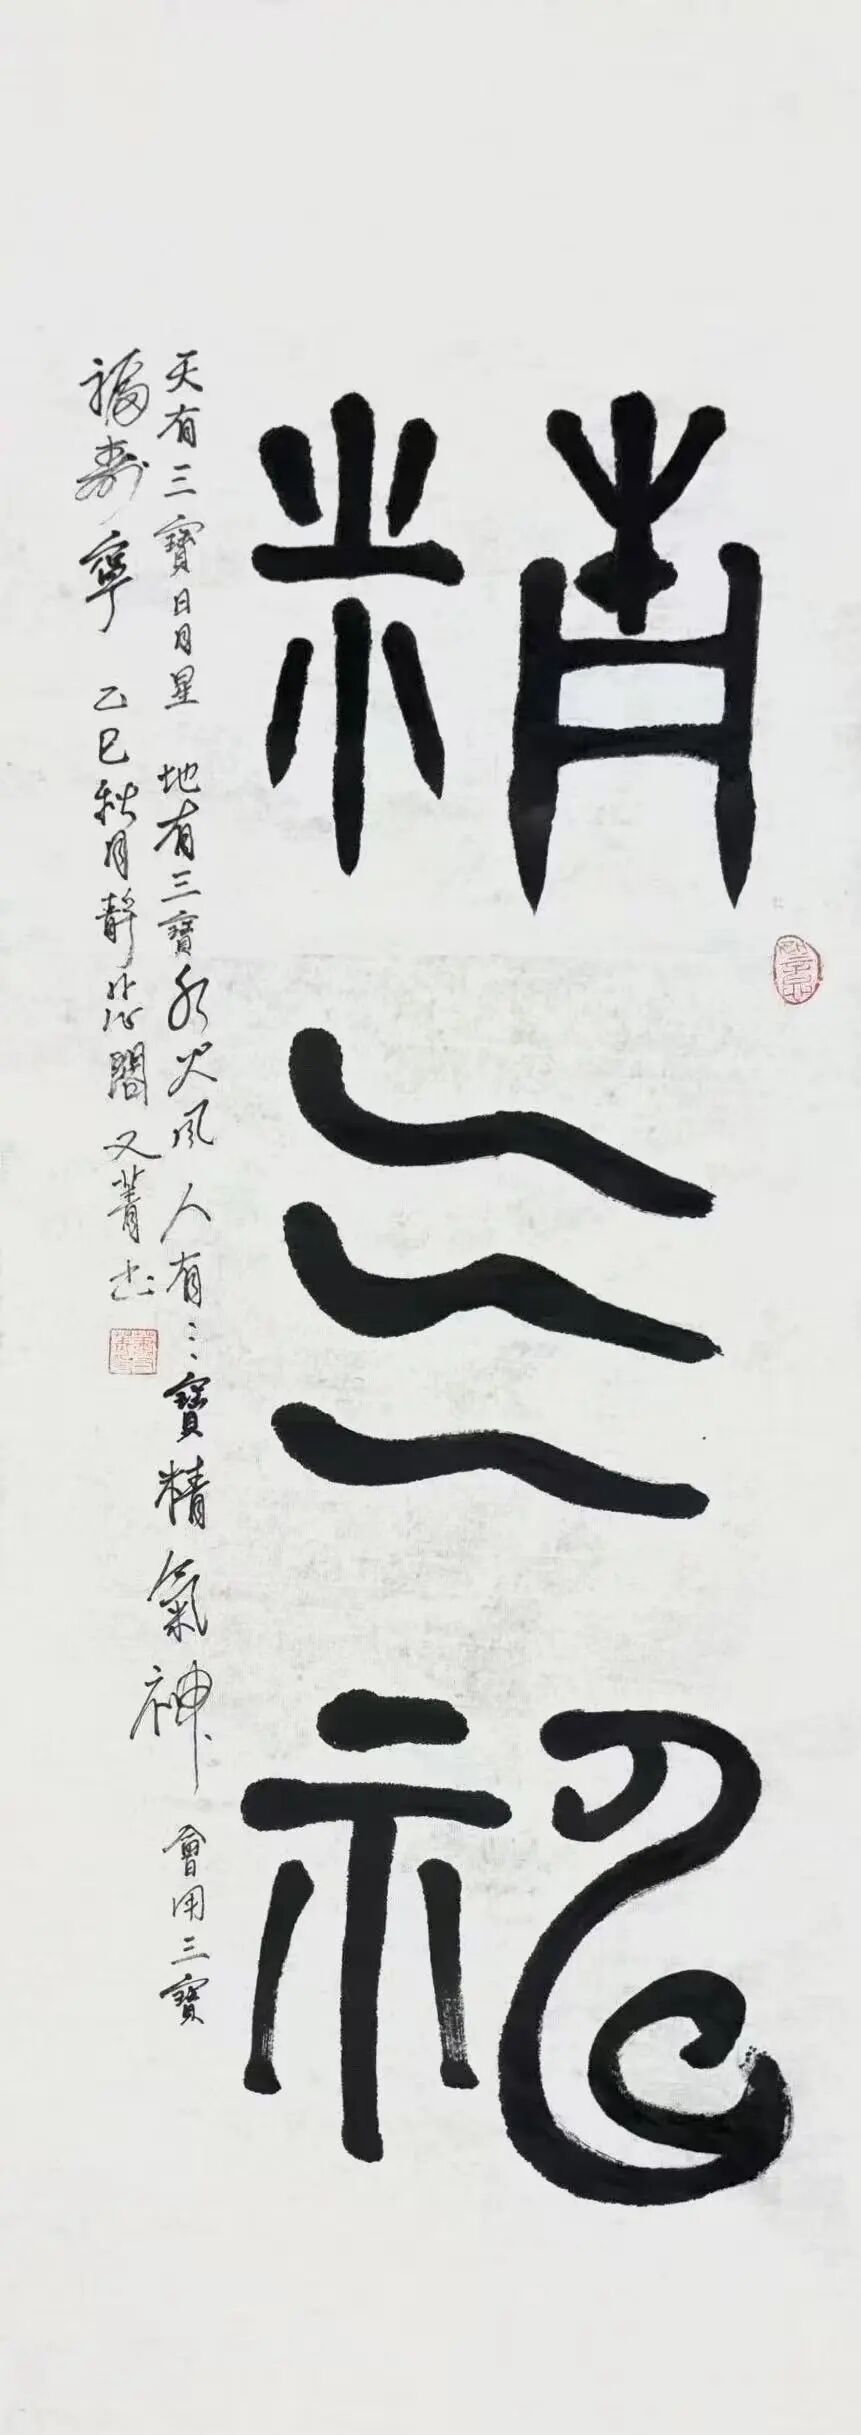 精气神
天有三寶日月星 地有三寶水火风 人有三寶精氣神 會用三寶
福寿寧 乙巳秋月静悲閣又菁书